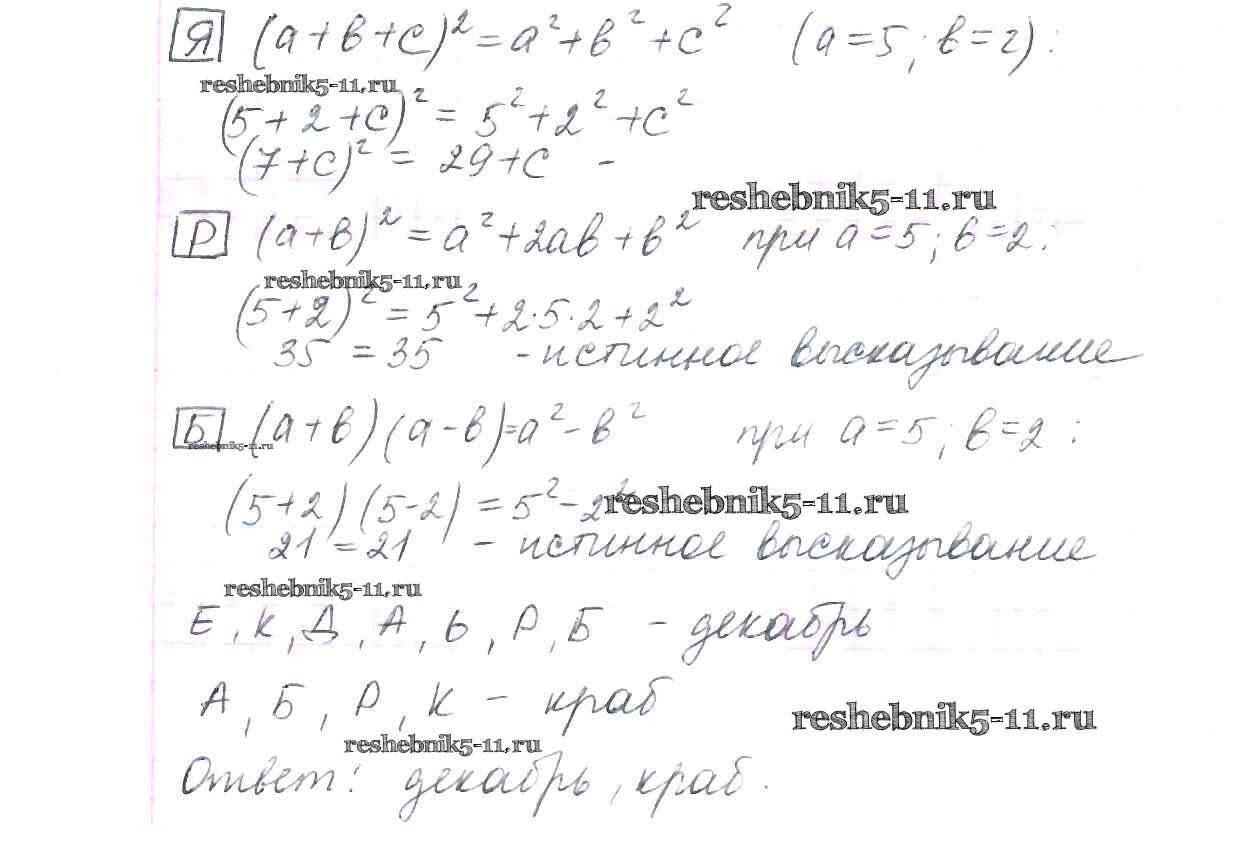 Я (a+b+c)² = a² + b² + c² (a = 5; b = 2):
reshebnik5-11.ru
(5 + 2 + c)² = 5² + 2² + c²
(7 + c)² = 29 + c -
reshebnik5-11.ru
Р (a+b)² = a² + 2ab + b² при a = 5; b = 2:
reshebnik5-11.ru
(5+2)² = 5² + 2·5·2 + 2²
35 = 35 - истинное высказывание
Б (a+b)(a-b) = a² - b² при a = 5; b = 2:
reshebnik5-11.ru
(5+2)(5-2) = 5² - 2²
reshebnik5-11.ru
21 = 21 - истинное высказывание
reshebnik5-11.ru
Е, К, Д, А, Ь, Р, Б - декабрь
А, Б, Р, К - краб
reshebnik5-11.ru
reshebnik5-11.ru
Ответ: декабрь, краб.